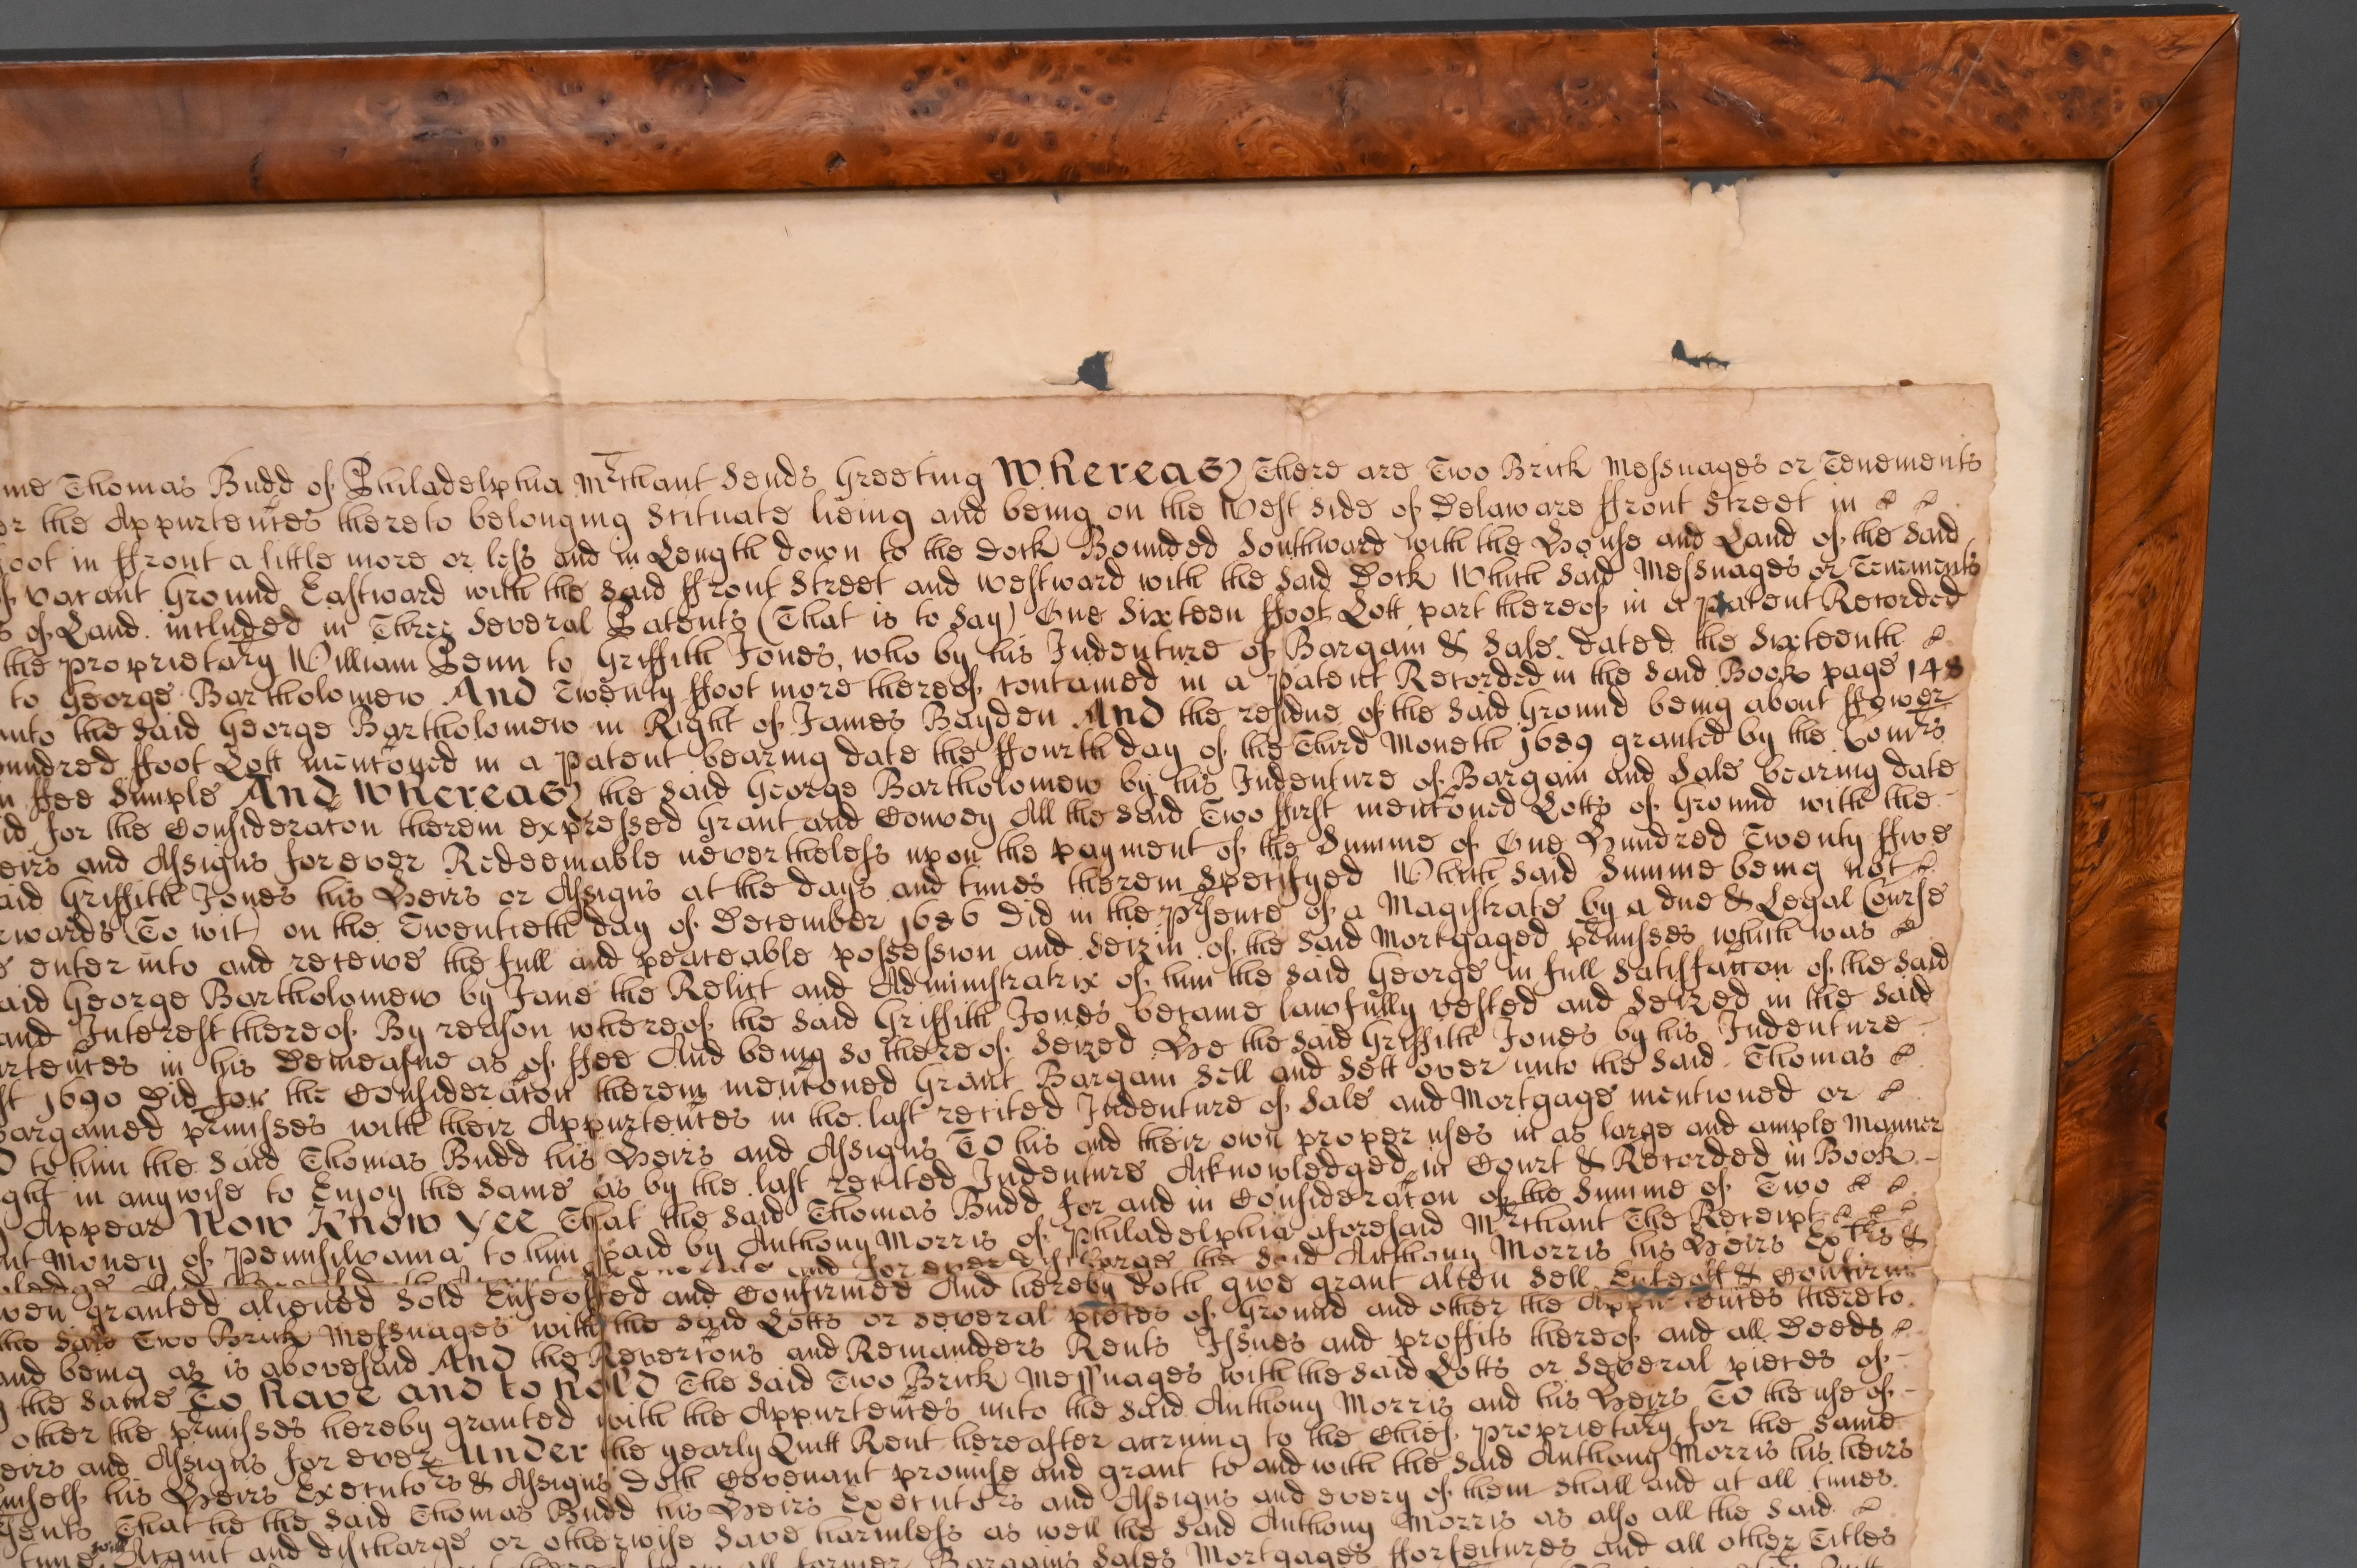 me Thomas Budd of Philadelphia Mrchant Sends Greeting Whereas There are Two Brick Messuages or Tenements
or the Appurtences thereto belonging Scituate lieing and being on the West side of Delaware ffront Street in
foot in ffront a little more or less and in Length down to the Dock Bounded Southward with the House and Land of the said
vacant Ground Eastward with the said ffront Street and westward with the said Dock Which said Messuages or Tenements
s of Land included in Three Several Patents (That is to Say) One Sixteen ffoot Lott part thereof in a patent Recorded
the proprietary William Penn to Griffith Jones, who by his Indenture of Bargain & Sale dated the Sixteenth
to George Bartholomew And Twenty ffoot more thereof contained in a patent Recorded in the said Book page 148
unto the said George Bartholomew in Right of James Bayden And the residue of the said Ground being about ffower
hundred ffoot Lott mentoned in a Patent bearing date the ffourth day of the Third Moneth 1689 granted by the Comrs
n ffee Simple And Whereas the said George Bartholomew by his Indenture of Bargain and Sale bearing date
id for the Consideracon therein expressed Grant and Convey All the said Two ffirst mentoned Lotts of Ground with the
eirs and Assigns forever Redeemable nevertheless upon the payment of the Summe of One Hundred Twenty ffive
aid Griffith Jones his Heirs or Assigns at the days and times therein Specifyed Which said Summe being not
rwards (To wit) on the Twentieth day of December 1686 Did in the prsence of a Magistrate by a due & Legal Course
e enter into and receive the full and peaceable possession and seizin of the said Mortgaged prmisses which was
aid George Bartholomew by Jane the Relict and Administratrix of him the said George in full satisfaccon of the said
and Interest thereof By reason whereof the said Griffith Jones became lawfully vested and seized in the said
urtences in his Demeasne as of ffee And being so thereof seized He the said Griffith Jones by his Indenture
st 1690 Did for the Consideracon therein mentoned Grant Bargain Sell and Sett over unto the said Thomas
bargained prmisses with their Appurtences in the last recited Indenture of Sale and Mortgage mentioned or
D to him the said Thomas Budd his Heirs and Assigns TO his and their own proper uses in as large and ample Manner
ght in anywise to Enjoy the same as by the last recited Indenture Acknowledged in Court & Recorded in Book
Appear Now Know Yee That the said Thomas Budd for and in Consideracon of the Summe of Two
nt Money of Pennsilvania to him paid by Anthony Morris of Philadelphia aforesaid Mrchant The Receipt
and for ever the said Anthony Morris his Heirs Extrs &
ven granted aliened sold Enfeoffed and Confirmed And hereby doth give grant alien sell Enfeoff & Confirm
the said Two Brick Messuages with the said Lotts or several pieces of Ground and other the Appurtences thereto
and being as is abovesaid And the Revercons and Remainders Rents Issues and proffits thereof and all Deeds
the same To have and to hold The said Two Brick Messuages with the said Lotts or several pieces of
other the prmisses hereby granted with the Appurtences unto the said Anthony Morris and his Heirs TO the use of
eirs and Assigns for ever Under the yearly Quitt Rent hereafter accruing to the Chief proprietary for the same
imself his Heirs Executors & Assigns doth Covenant promise and grant to and with the said Anthony Morris his heirs
sents That he the said Thomas Budd his Heirs Executors and Assigns and every of them shall and at all times
time will Acquit and discharge or otherwise save harmless as well the said Anthony Morris as also all the said
all former Bargains Sales Mortgages fforfeitures and all other Titles